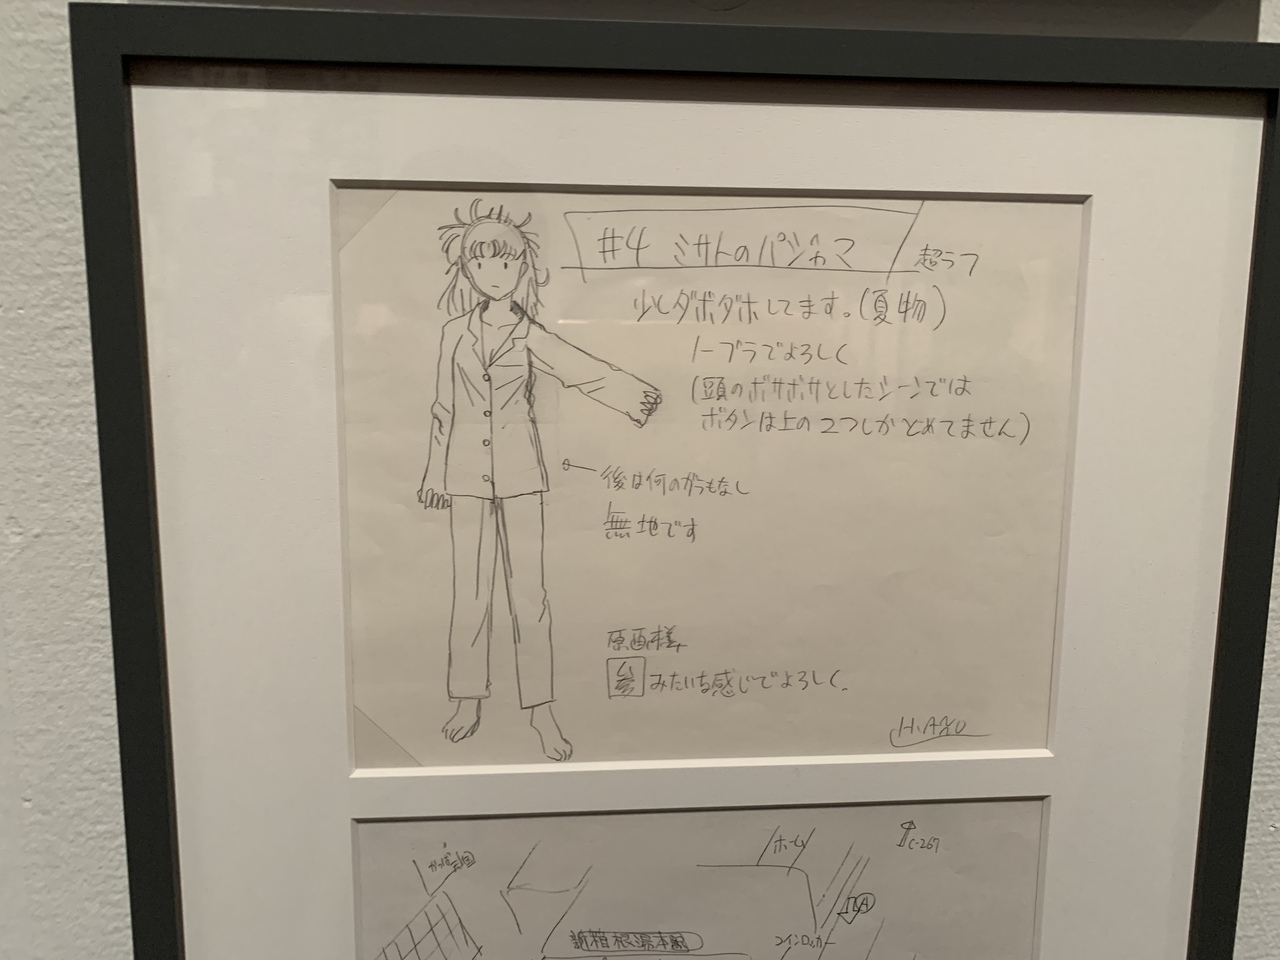 #4 ミサトのパジャマ
超ラフ
少しダボダボしてます。(夏物)
ノーブラでよろしく
(頭のボサボサとしたシーンでは
ボタンは上の2つしかとめてません)
後は何のガラもなし
無地です
原画様
参 みたいな感じでよろしく。
H.ANO
ホーム
C-267
かっぱ天国
A
新箱根湯本駅
コインロッカー